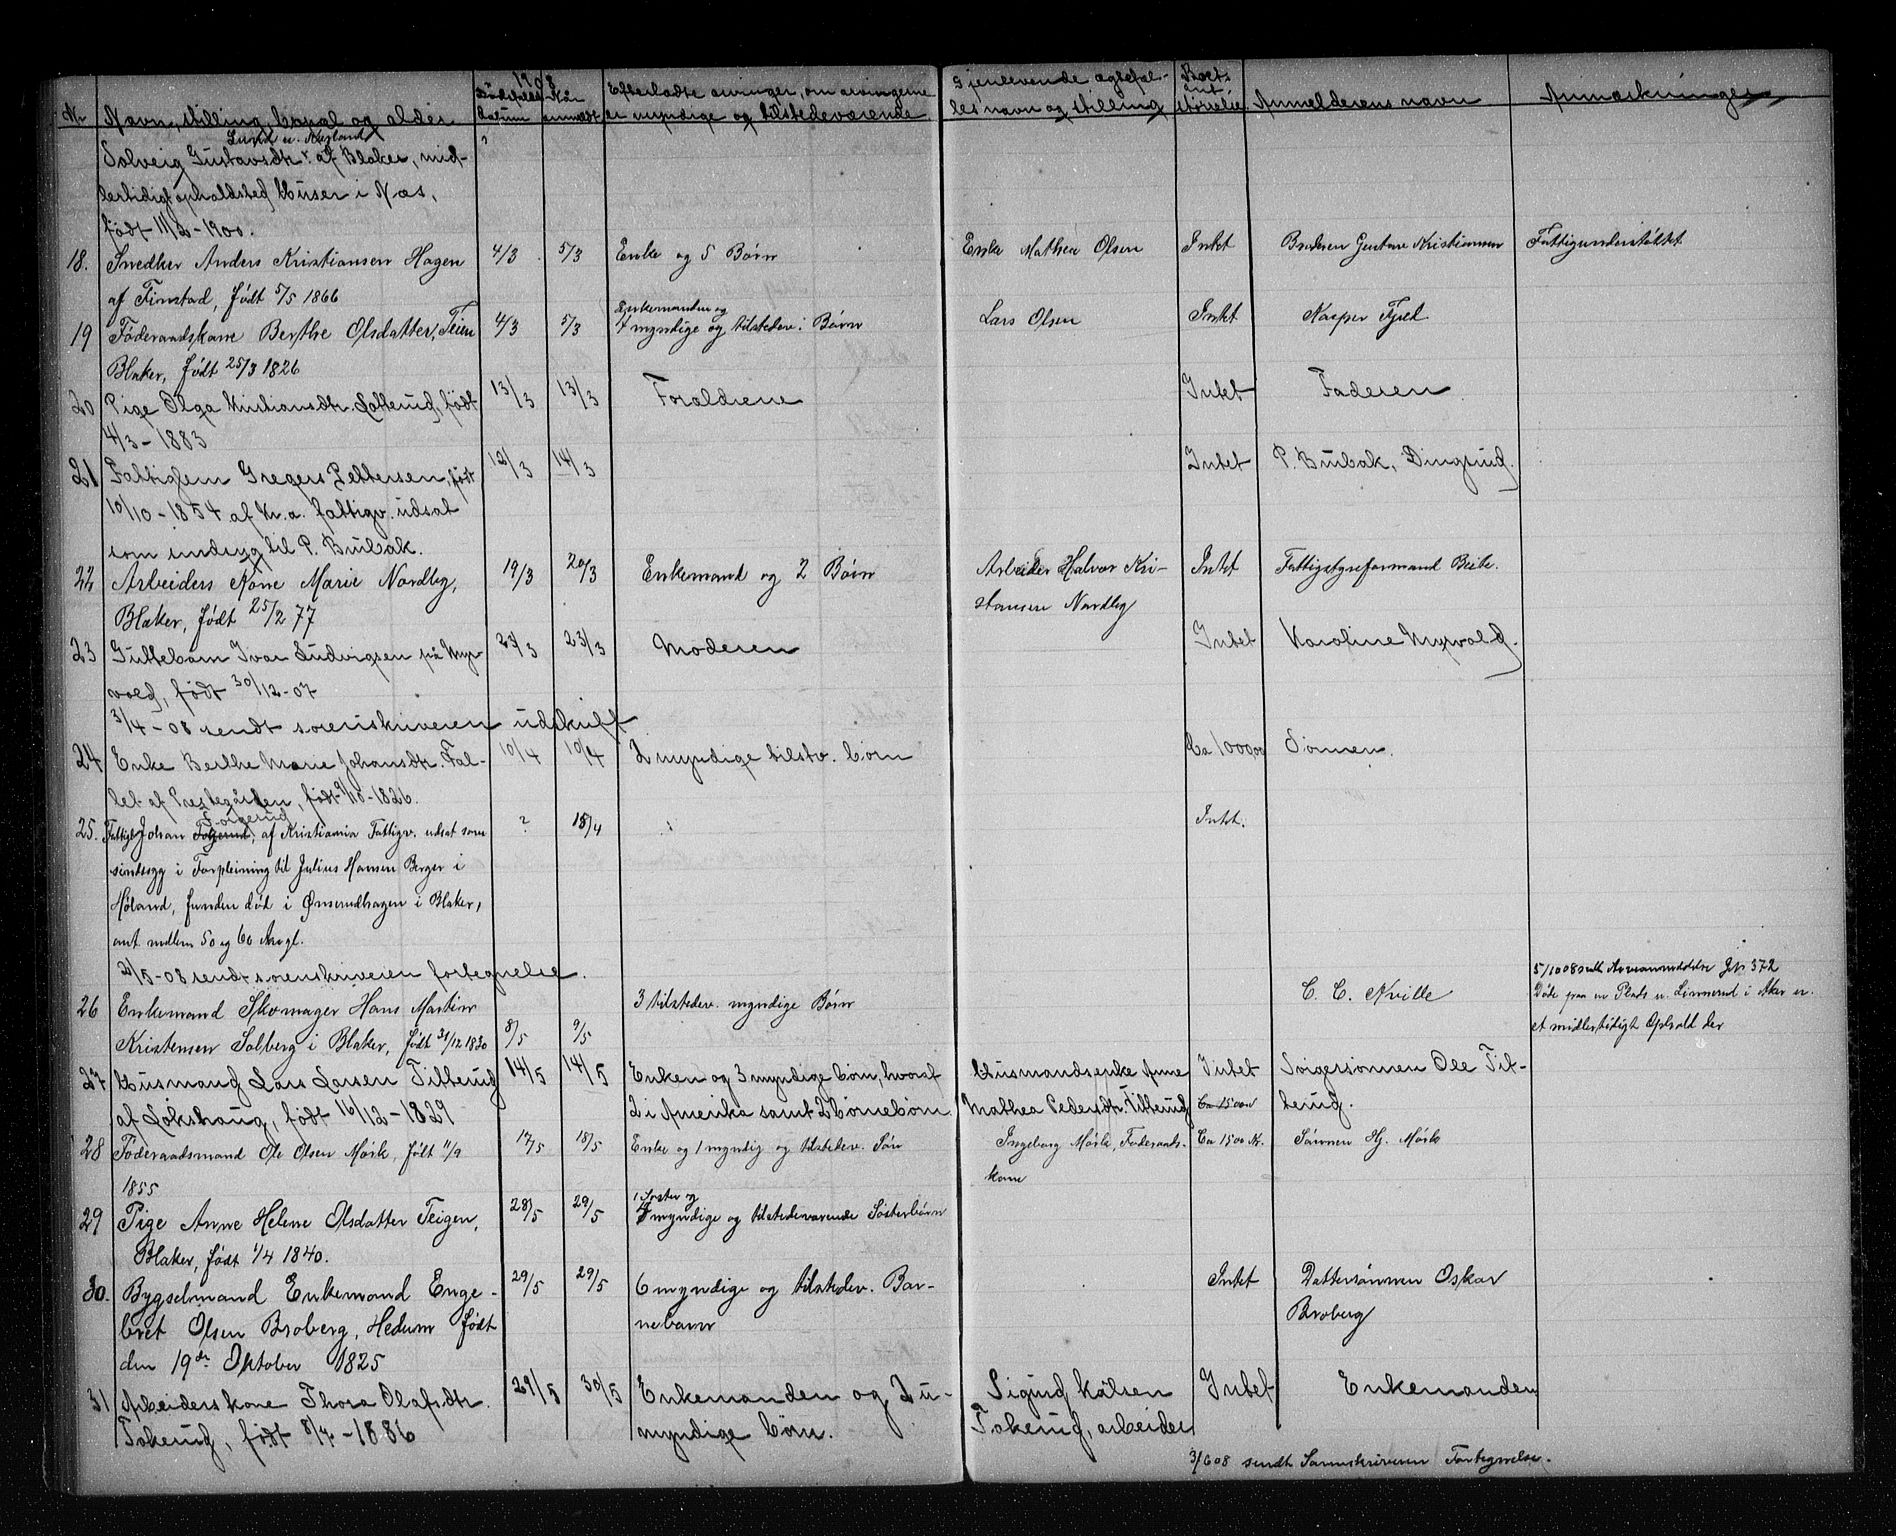 1908
Nr Navn, stilling, bopæl og alder Dødsfaldets datum Når anmeldt Efterladte arvinger, om arvingerne er myndige og tilstedeværende Gjenlevende ægtefælles navn og stilling Boets størrelse Anmelderens navn Anmærkninger
Lund u. Nyland ?
Solveig Gustavsdtr. af Blaker, mid-
lertidigt opholdsted Huser i Næs,
født 11/2-1900.
18. Snedker Anders Kristiansen Hagen 4/3 5/3 Enke og 5 Børn Enke Mathea Olsen Intet Broderen Gustav Kristiansen Fattigunderstøttet
af Finstad, født 5/5 1866
Enkemanden og
19 Føderaadskone Berthe Olsdatter, Teien 4/3 5/3 4 myndige og tilstedev. Børn Lars Olsen Intet Kasper Fjeld.
Blaker, født 25/3 1826
20 Pige Olga Kristiansdtr. Lotterud, født 13/3 13/3 Forældrene Intet Faderen
4/3-1883
21 Fattiglem Gregers Pettersen, født 12/3 14/3 Intet P. Bulak, Dingsrud.
10/10-1854 af Kr.a. fattigv. udsat
som sindsyg til P. Bulak.
22 Arbeiders Kone Marie Nordby, 19/3 20/3 Enkemand og 2 Børn Arbeider Halvor Kri- Intet Fattigstyreformand Beite.
Blaker, født 25/2 77 stiansen Nordby
23 Guttebarn Ivar Ludvigsen på Myr- 23/3 23/3 Moderen Intet Karoline Myrvold.
vold, født 30/12-07
3/4-08 sendt sorenskriveren udskrift
24 Enke Berthe Marie Johansdtr. Fal- 10/4 10/4 2 myndige tilstv. børn Ca 1000,00 Sønnen.
let af Prestegården, født /10-1826.
Solgerud
25. Fattigl. Johan af Kristiania Fattigv. udsat som ? 15/4 Intet.
sindssyg i Forpleining til Julius Hansen Berger i
Høland, funden død i Ønserudhagen i Blaker,
ant. mellem 50 og 60 Aar gl.
2/5-08 sendt sorenskriveren fortegnelse.
26 Enkemand Skomager Hans Martin 3 tilstedev. myndige Børn C. C. Kville Døde paa en Plads u. Linnerud i Aker er.
Kristensen Solberg i Blaker, født 31/12 1830 8/5 9/5 et midlertidigt Ophold der
27 Husmand Lars Larsen Titterud 14/5 14/5 Enken og 3 myndige børn, hvoraf Husmandsenke Anne Intet Svigersønnen Ole Tit-
af Løkshaug, født 16/12-1829 2 i Amerika samt 2 børnebørn Mathea Pedersdtr. Titterud Ca 1500 terud.
28 Føderaadsmand Ole Olsen Mørk, født 11/9 17/5 18/5 Enke og 1 myndig og tilstedev. Søn Ingeborg Mørk, Føderaads- Ca 1500 K. Sønnen Hj. Mørk
1855 kone
1 Søster og
29 Pige Anne Helene Olsdatter Teigen, 28/5 29/5 myndige og tilstedeværende Søsterbørn
Blaker, født 1/4 1840.
30. Bygselmand Enkemand Enge- 29/5 29/5 6 myndige og tilstedev. Bar- Intet Dattersønnen Oskar
bret Olsen Broberg, Hedum født nebarn Broberg
den 19de Oktober 1825
31 Arbeiderskone Thora Olafsdtr. 29/5 30/5 Enkemanden og 2 u- Sigurd Kølsen Intet Enkemanden
Tokerud, født 8/4-1886 myndige børn. Tokerud, arbeider
3/6 08 sendt Sorenskriveren Fortegnelse.